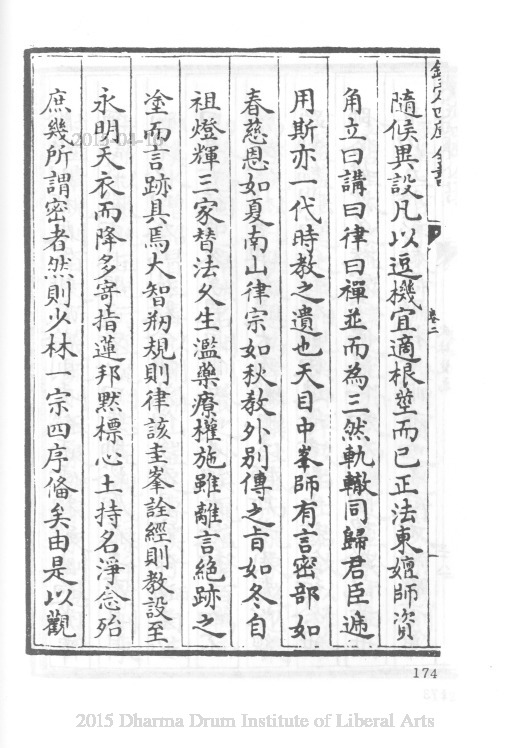 欽定四庫全書
卷二
隨候異設凡以逗機宜適根莖而已正法東嬗師資
角立曰講曰律曰禪並而為三然軌轍同歸君臣遞
用斯亦一代時教之遺也天目中峯師有言密部如
春慈恩如夏南山律宗如秋教外別傳之旨如冬自
祖燈輝三家替法久生濫藥療權施雖離言絕跡之
塗而言跡具焉大智剏規則律該圭峯詮經則教設至
永明天衣而降多寄指蓮邦默標心土持名淨念殆
庶幾所謂密者然則少林一宗四序備矣由是以觀
174
2015-04-16
2015 Dharma Drum Institute of Liberal Arts